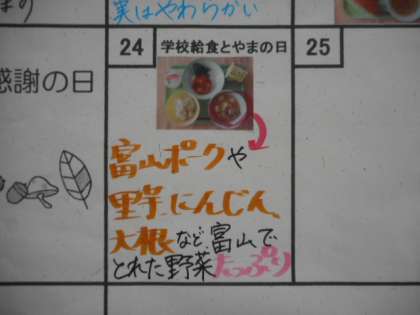 実はやわらかい
24 学校給食とやまの日
25
感謝の日
富山ポークや
里芋、にんじん、
大根など富山で
とれた野菜たっぷり